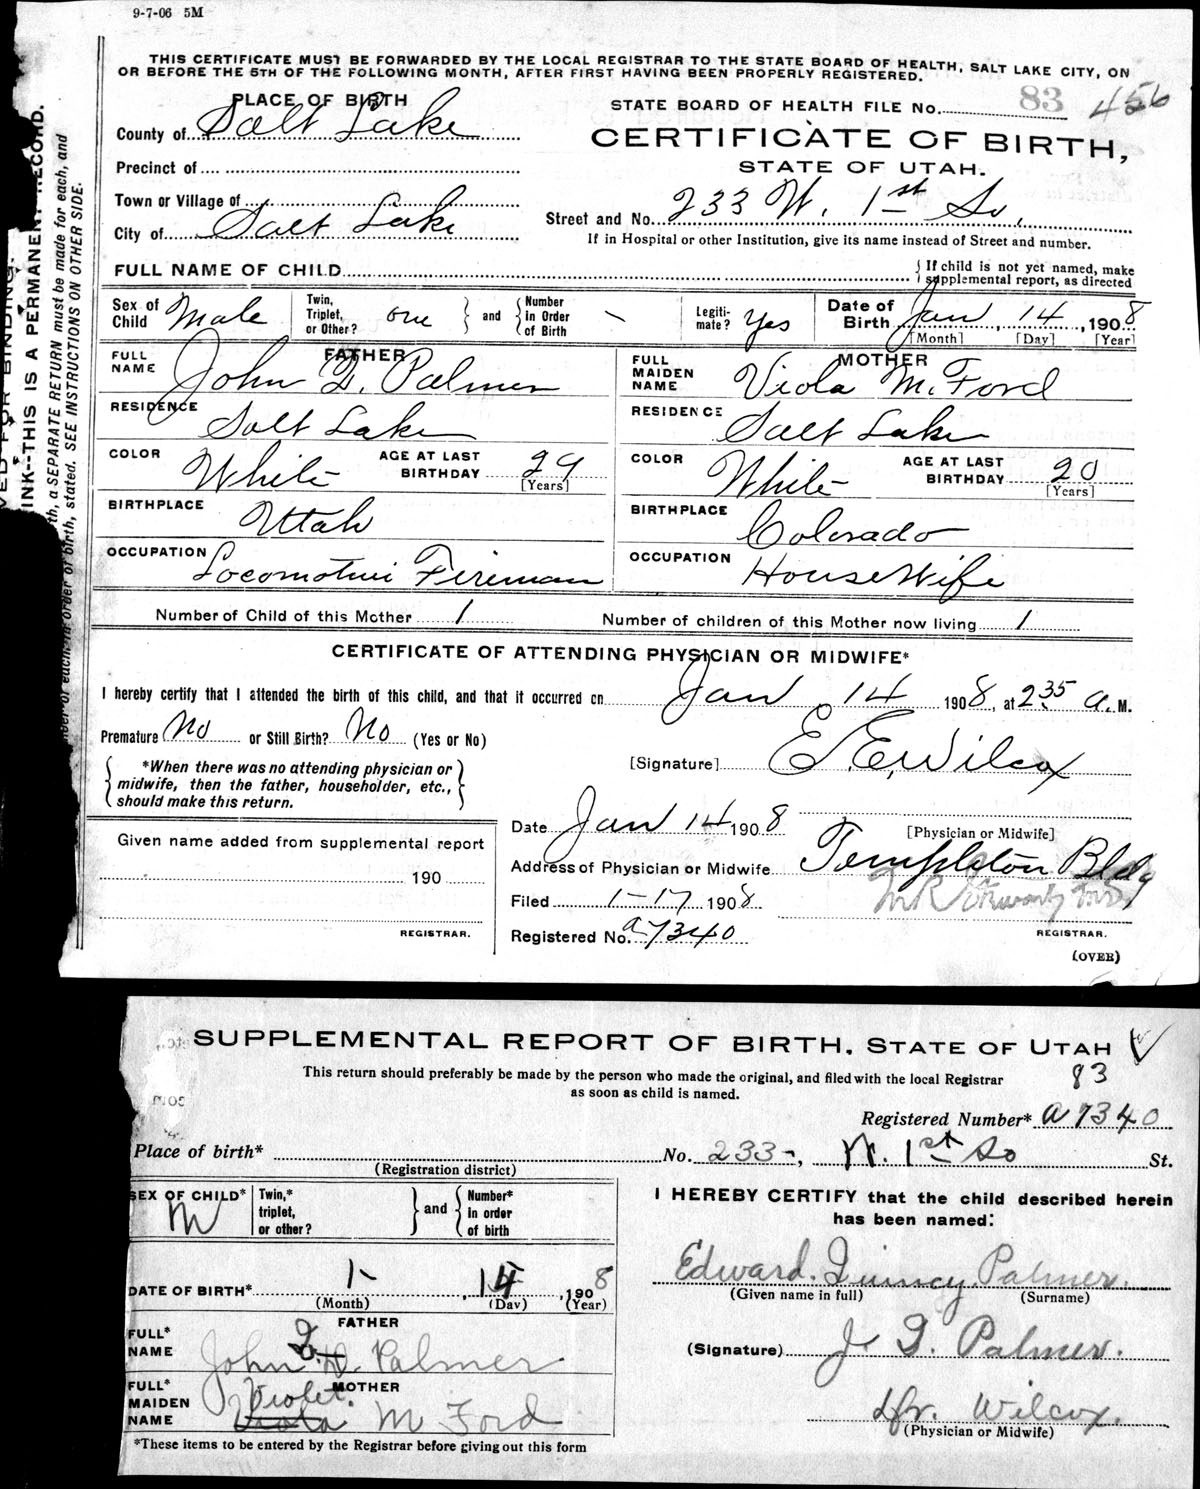 9-7-06 5M
THIS CERTIFICATE MUST BE FORWARDED BY THE LOCAL REGISTRAR TO THE STATE BOARD OF HEALTH, SALT LAKE CITY, ON
OR BEFORE THE 5TH OF THE FOLLOWING MONTH, AFTER FIRST HAVING BEEN PROPERLY REGISTERED.
PLACE OF BIRTH
County of Salt Lake
Precinct of
Town or Village of
City of Salt Lake
STATE BOARD OF HEALTH FILE No. 83 456
CERTIFICATE OF BIRTH,
STATE OF UTAH.
Street and No. 233 W. 1st So.
If in Hospital or other Institution, give its name instead of Street and number.
FULL NAME OF CHILD
If child is not yet named, make
supplemental report, as directed
Sex of Child Male
Twin, Triplet, or Other? one and Number in Order of Birth -
Legiti-mate? Yes
Date of Birth Jan, 14, 1908
[Month] [Day] [Year]
FATHER
FULL NAME John Q. Palmer
RESIDENCE Salt Lake
COLOR White AGE AT LAST BIRTHDAY 29
[Years]
BIRTHPLACE Utah
OCCUPATION Locomotive Fireman
MOTHER
FULL MAIDEN NAME Viola M. Ford
RESIDENCE Salt Lake
COLOR White AGE AT LAST BIRTHDAY 20
[Years]
BIRTHPLACE Colorado
OCCUPATION HouseWife
Number of Child of this Mother 1 Number of children of this Mother now living 1
CERTIFICATE OF ATTENDING PHYSICIAN OR MIDWIFE*
I hereby certify that I attended the birth of this child, and that it occurred on Jan 14 1908, at 2.35 a. M.
Premature No or Still Birth? No (Yes or No)
*When there was no attending physician or
midwife, then the father, householder, etc.,
should make this return.
[Signature] E. E. Wilcox
[Physician or Midwife]
Date Jan 14 1908
Address of Physician or Midwife Templeton Bldg
Filed 1-17 1908
Registered No. a7340
REGISTRAR.
(OVER)
Given name added from supplemental report
190
REGISTRAR.
INK--THIS IS A PERMANENT RECORD.
a SEPARATE RETURN must be made for each, and
of birth, stated. SEE INSTRUCTIONS ON OTHER SIDE.
SUPPLEMENTAL REPORT OF BIRTH, STATE OF UTAH
This return should preferably be made by the person who made the original, and filed with the local Registrar
as soon as child is named.
83
Registered Number* a7340
Place of birth* No. 233-, W. 1st So St.
(Registration district)
SEX OF CHILD* M
Twin,* triplet, or other? and Number* in order of birth
DATE OF BIRTH* 1- 14, 1908
(Month) (Day) (Year)
FATHER
FULL* NAME John Q. D. Palmer
MOTHER
FULL* MAIDEN NAME Violet. Viola M Ford
*These items to be entered by the Registrar before giving out this form
I HEREBY CERTIFY that the child described herein
has been named:
Edward. Quincy Palmer.
(Given name in full) (Surname)
(Signature) J. Q. Palmer.
Dr. Wilcox.
(Physician or Midwife)